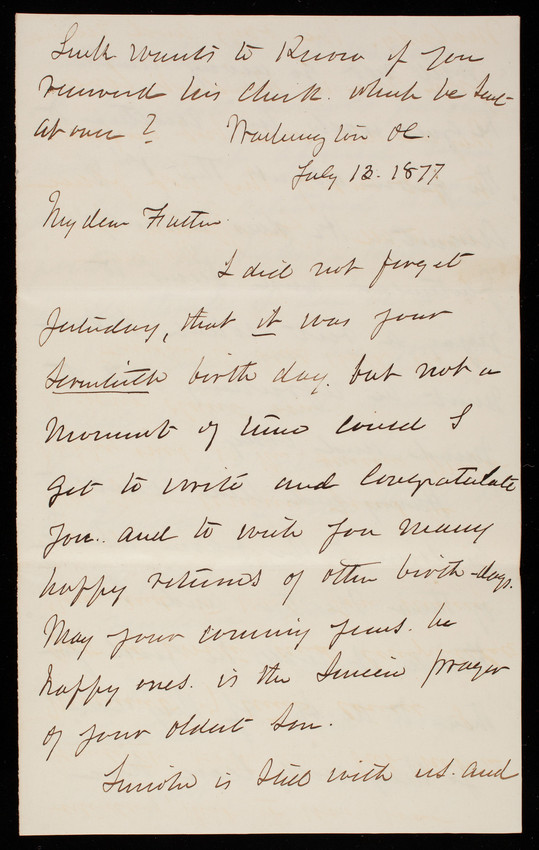 Linck wants to know if you
received his check. which he sent
at once? Washington DC.
July 13. 1877
My dear Father.
I did not forget
yesterday, that it was your
Seventieth birth day. but not a
moment of time could I
get to write and Congratulate
you. and to wish you many
happy returns of other birth-days.
May your coming years. be
happy ones. is the Sincere prayer
of your oldest Son.
Lincoln is still with us. and